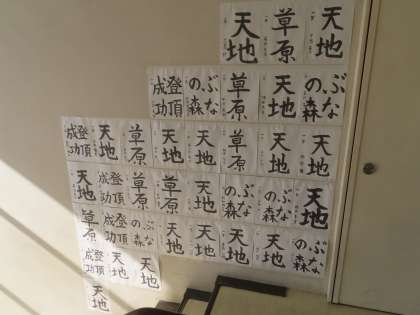 天地
草原
天地
登頂成功
ぶなの森
草原
天地
ぶなの森
登頂成功
天地
草原
天地
天地
草原
天地
天地
天地
登頂成功
草原
草原
天地
ぶなの森
ぶなの森
天地
草原
登頂成功
ぶなの森
天地
天地
天地
天地
ぶなの森
登頂成功
天地
天地
天地